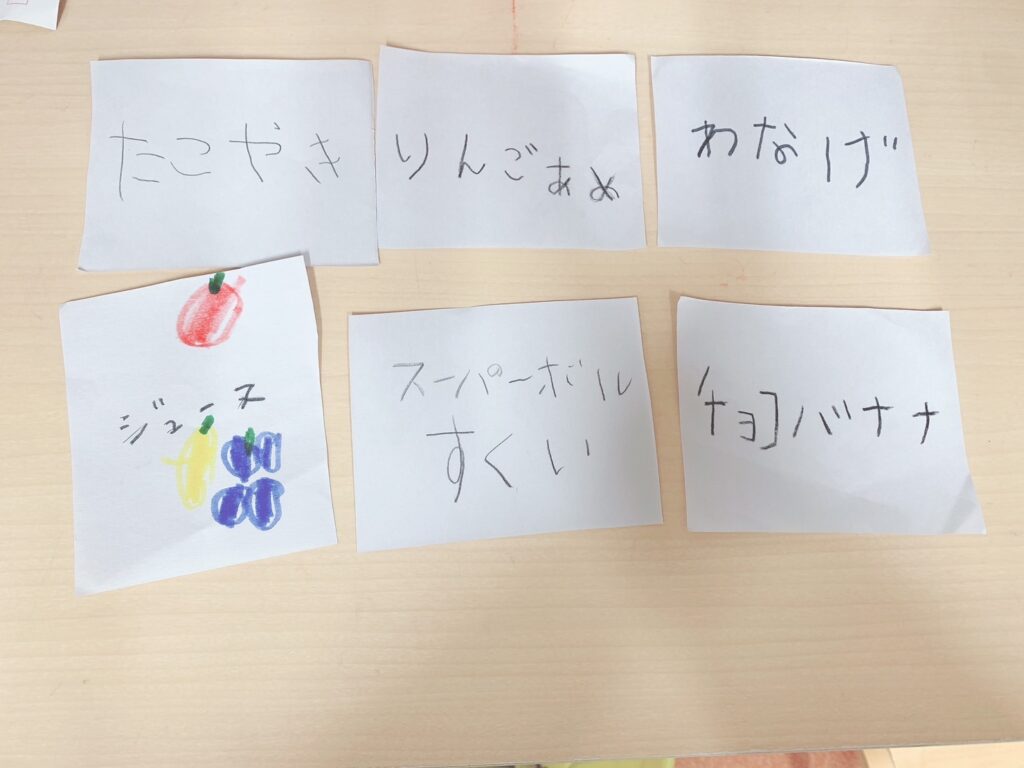 たこやき
りんごあめ
わなげ
ジュース
スーパーボール
すくい
チョコバナナ